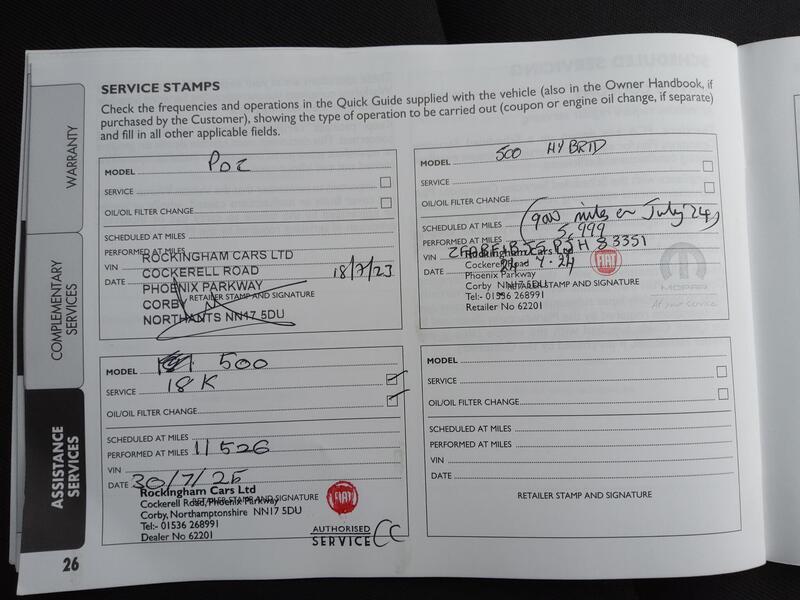 SERVICE STAMPS
Check the frequencies and operations in the Quick Guide supplied with the vehicle (also in the Owner Handbook, if
purchased by the Customer), showing the type of operation to be carried out (coupon or engine oil change, if separate)
and fill in all other applicable fields.
WARRANTY
COMPLEMENTARY
SERVICES
ASSISTANCE
SERVICES
MODEL PDI
SERVICE
OIL/OIL FILTER CHANGE
SCHEDULED AT MILES
PERFORMED AT MILES
VIN
DATE 18/7/23
RETAILER STAMP AND SIGNATURE
ROCKINGHAM CARS LTD
COCKERELL ROAD
PHOENIX PARKWAY
CORBY
NORTHANTS NN17 5DU
MODEL 500 HYBRID
SERVICE
OIL/OIL FILTER CHANGE
SCHEDULED AT MILES (9000 miles or July '24)
PERFORMED AT MILES 5,999
VIN
DATE 24.7.24
RETAILER STAMP AND SIGNATURE
Rockingham Cars Ltd
Cockerell Road
Phoenix Parkway
Corby NN17 5DU
Tel:- 01536 268991
Retailer No 62201
FIAT
MOPAR
At your service
MODEL 500
SERVICE 18K
OIL/OIL FILTER CHANGE
SCHEDULED AT MILES
PERFORMED AT MILES 11526
VIN
DATE 30/7/25
RETAILER STAMP AND SIGNATURE
Rockingham Cars Ltd
Cockerell Road, Phoenix Parkway
Corby, Northamptonshire NN17 5DU
Tel:- 01536 268991
Dealer No 62201
FIAT
AUTHORISED
SERVICE CC
MODEL
SERVICE
OIL/OIL FILTER CHANGE
SCHEDULED AT MILES
PERFORMED AT MILES
VIN
DATE
RETAILER STAMP AND SIGNATURE
26